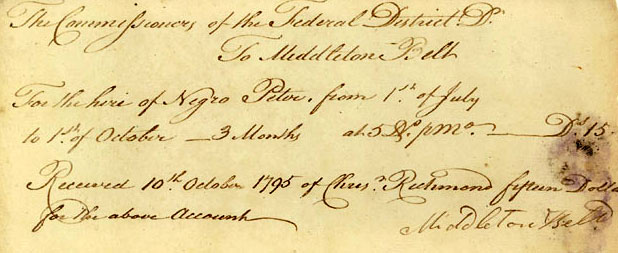 The Commissioners of the Federal District Dr
To Middleton Belt
For the hire of Negro Peter, from 1st. of July
to 1st. of October — 3 Months at 5 Ds. p Mo. — Ds 15
Received 10th. October 1795 of Chrisr. Richmond fifteen Dolla
for the above Account
Middleton Belt